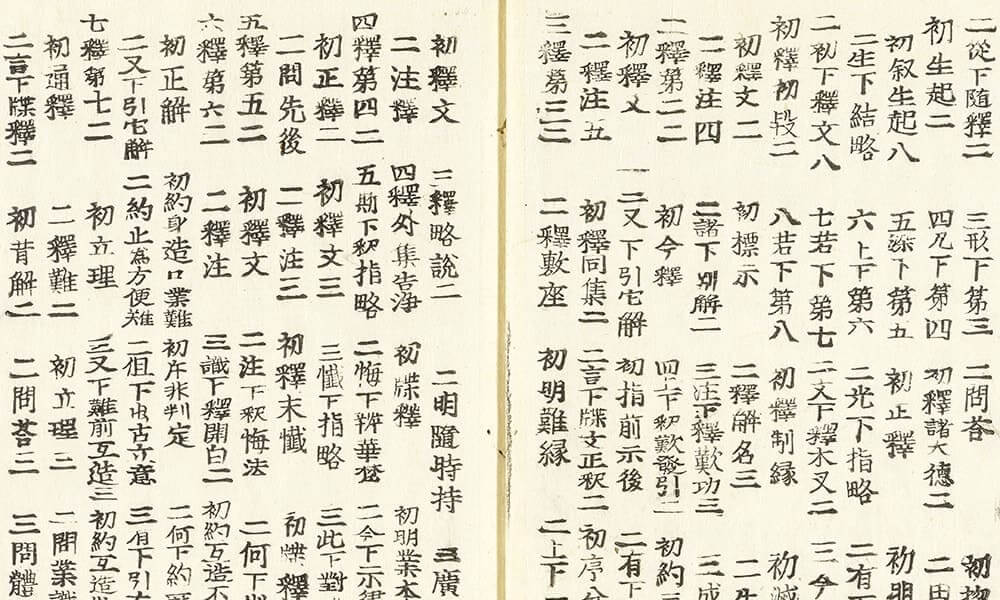 二從下隨釋二 三形下第三 二問荅
初生起二 四凡下第四 初釋諸大德二 二田
初叙生起八 五深下第五 初正釋 初明
二生下結略 六上下第六 二光下指略 二有下
二初下釋文八 七若下第七 二文下釋木叉二 三今
初釋初段二 八若下第八 初釋制緣 初滅
初釋文二 初標示 二釋解名三 二生
二釋注四 二諸下別解二 三注下釋歎功三 三成
二釋第二二 初今釋 四上下釈歎發引二 初約
初釋文 三又下引它解 初指前示後 二有下
二釋注五 初釋同集二 二言下牒文正釋二 初序分
三釋第三三 二釋敷座 初明難緣 二上下
初釋文 三釋略說二 二明隨時持 三廣
二注釋 四釋外集告淨 初牒釋 初明業本
四釋第四二 五勘下釈指略 二悔下辨華梵 二今下示律
初正釋二 初釋文三 三懺下指略 三此下對
二問先後 二釋注三 初釋末懺 初牒釋
五釋第五二 初釋文 二注下釈悔法 二何下
六釋第六二 二釋注 三識下釋開白二 初約互造不
初正解 初約身造口業難 初斥非判定 二何下約
二又下引它解 二約止為方便难 二但下出古立意 三但下引
七釋第七二 初立理 三又下難前互造三 初約互造
初通釋 二釋難二 初立理三 二問業識
二言下牒釋二 初昔解二 二問荅三 三問體